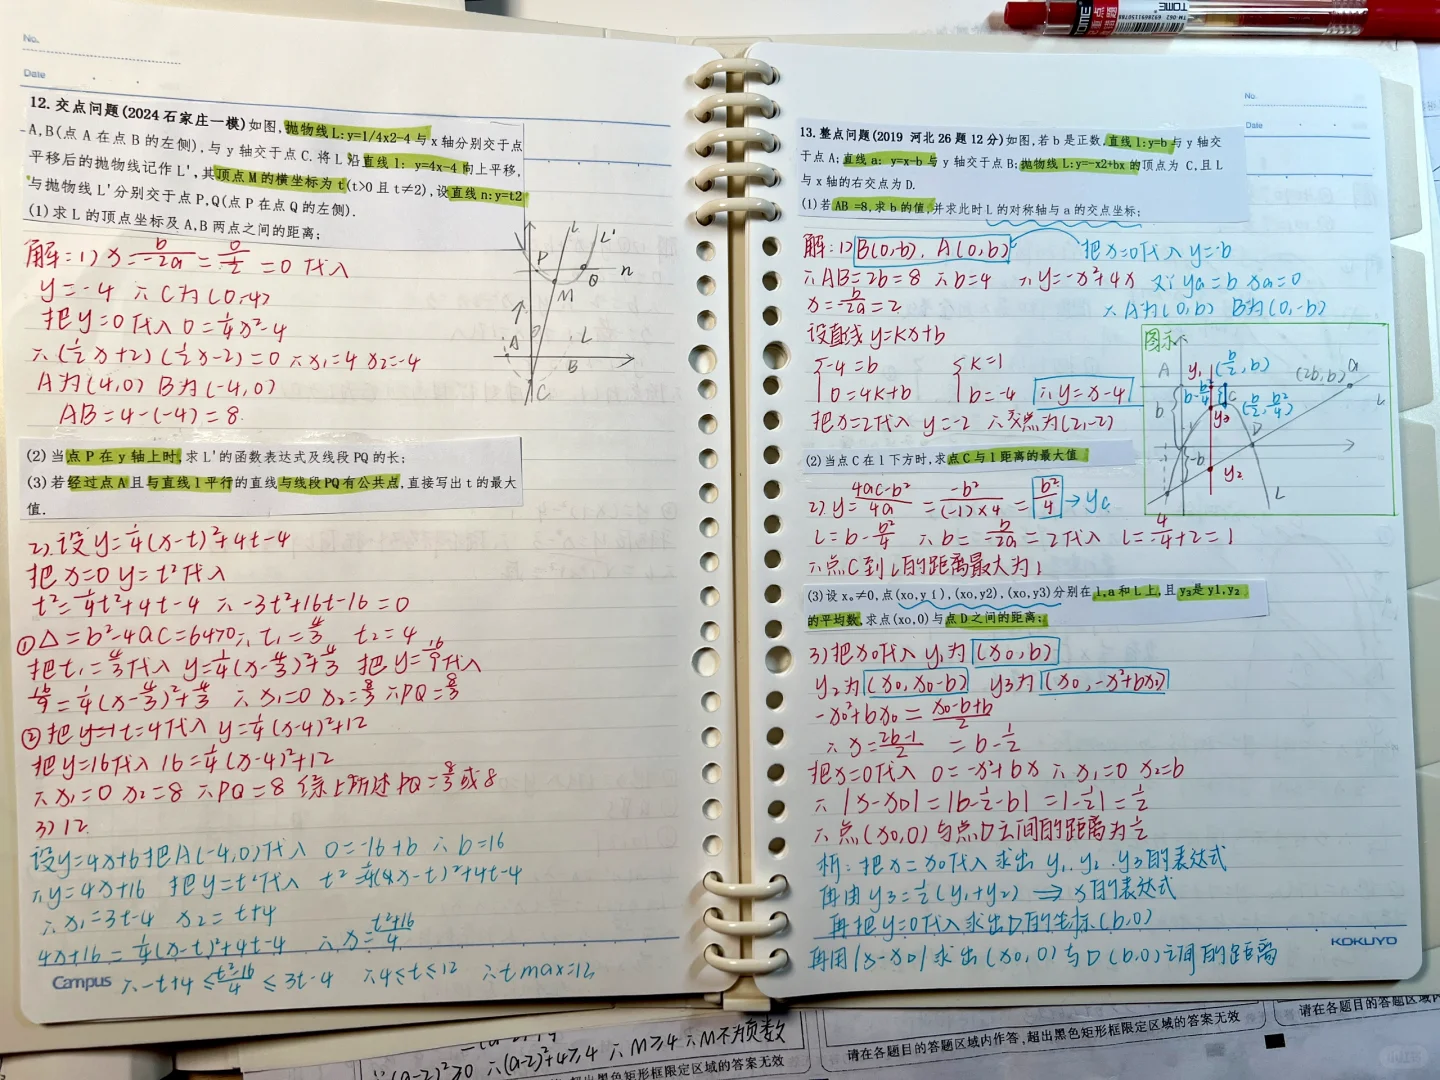 No.
Date
12.交点问题(2024石家庄一模)如图,抛物线L:y=1/4x2-4与x轴分别交于点
A,B(点A在点B的左侧),与y轴交于点C.将L沿直线l: y=4x-4向上平移,
平移后的抛物线记作L',其顶点M的横坐标为t(t>0且t≠2),设直线n:y=t2
与抛物线L'分别交于点P,Q(点P在点Q的左侧).
(1)求L的顶点坐标及A,B两点之间的距离;
解:1) x=b/-2a=0/-1/2=0 代入
y=-4 ∴C为(0,-4)
把y=0代入 0=1/4x²-4
∴(1/2x+2)(1/2x-2)=0 ∴x₁=4 x₂=-4
A为(4,0) B为(-4,0)
AB=4-(-4)=8.
L L'
P Q n
M
A L B
C
(2)当点P在y轴上时,求L'的函数表达式及线段PQ的长;
(3)若经过点A且与直线l平行的直线与线段PQ有公共点,直接写出t的最大
值.
2)设y=1/4(x-t)²+4t-4
把x=0 y=t²代入
t²=1/4t²+4t-4 ∴-3t²+16t-16=0
①△=b²-4ac=64>0∴t₁=4/3 t₂=4
把t₁=4/3代入 y=1/4(x-4/3)²+4/3 把y=16/9代入
16/9=1/4(x-4/3)²+4/3 ∴x₁=0 x₂=8/3 ∴PQ=8/3
②把t=4代入 y=1/4(x-4)²+12
把y=16代入 16=1/4(x-4)²+12
∴x₁=0 x₂=8 ∴PQ=8 综上所述PQ=8/3或8
3)12.
设y=4x+b把A(-4,0)代入 0=-16+b ∴b=16
∴y=4x+16 把y=t²代入 t²=1/4(x-t)²+4t-4
∴x₁=3t-4 x₂=-t+4
4x+16=1/4(x-t)²+4t-4 ∴x=t²-16/4
∴-t+4≤t²-16/4≤3t-4 ∴4≤t≤12 ∴t max=12
Campus
No.
Date
13.整点问题(2019 河北26题12分)如图,若b是正数,直线l:y=b与y轴交
于点A;直线a: y=x-b与y轴交于点B;抛物线L:y=-x2+bx的顶点为 C,且L
与x轴的右交点为D.
(1)若AB=8,求b的值,并求此时L的对称轴与a的交点坐标;
解:1) B(0,-b), A(0,b) 把x=0代入 y=-b
∴AB=2b=8 ∴b=4 ∴y=-x²+4x 又∵ya=b xa=0
x=b/-2a=2 ∴A为(0,b) B为(0,-b)
设直线y=kx+b
{-4=b {k=1
0=4k+b b=-4 ∴y=x-4
把x=2代入 y=-2 ∴交点为(2,-2)
图示
A y₁ (b/2,b) (2b,b) a
b b-b²/4 C (b/2,b²/4) L
y₃ D
-b y₂
L
(2)当点C在l下方时,求点C与l距离的最大值
2) y=4ac-b²/4a=-b²/(-1)×4=b²/4→yc
L=b-b²/4 ∴b=b/-2a=2代入 L=4/-4+2=1
∴点C到L的距离最大为1
(3)设x₀≠0,点(xo,y1),(xo,y2),(xo,y3)分别在l,a和L上,且y₃是y1,y₂
的平均数,求点(xo,0)与点D之间的距离;
3)把x₀代入 y₁为(x₀,b)
y₂为(x₀,x₀-b) y₃为(x₀,-x²+bx₀)
-x₀²+bx₀=x₀-b+b/2
∴x=2b-1/2=b-1/2
把y=0代入 0=-x²+bx ∴x₁=0 x₂=b
∴|x-x₀|=|b-1/2-b|=|-1/2|=1/2
∴点(x₀,0)与点D之间的距离为1/2
析:把x=x₀代入求出y₁.y₂.y₃的表达式
再由y₃=1/2(y₁+y₂)⇒x的表达式
再把y=0代入求出D的坐标(b,0)
再用|x-x₀|求出(x₀,0)与D(b,0)之间的距离
KOKUYO
∴(a-2)²+4≥4 ∴M≥4 ∴M不为负数
超出黑色矩形框限定区域的答案无效
请在各题目的答题区域内作答,超出黑色矩形框限定区域的答案无效
请在各题目的答题区域内